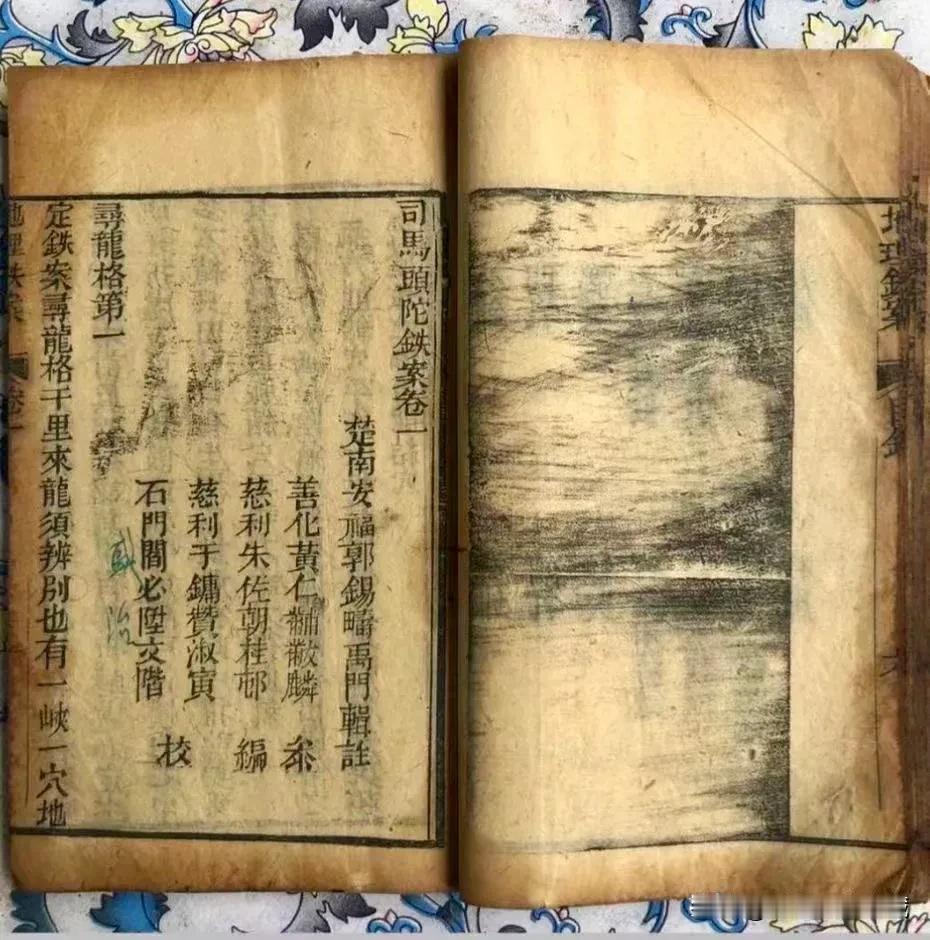 地理鉄案 目錄
司馬頭陀鉄案卷一
楚南安福郭錫疇禹門輯註
善化黃仁黼黻麟 叅
慈利朱佐朝桂邨 編
慈利于鏞贊淑寅
石門閻必陞文階 校
尋龍格第一
定鉄案尋龍格千里來龍須辨別也有一峽一穴地
地理鉄案 卷一